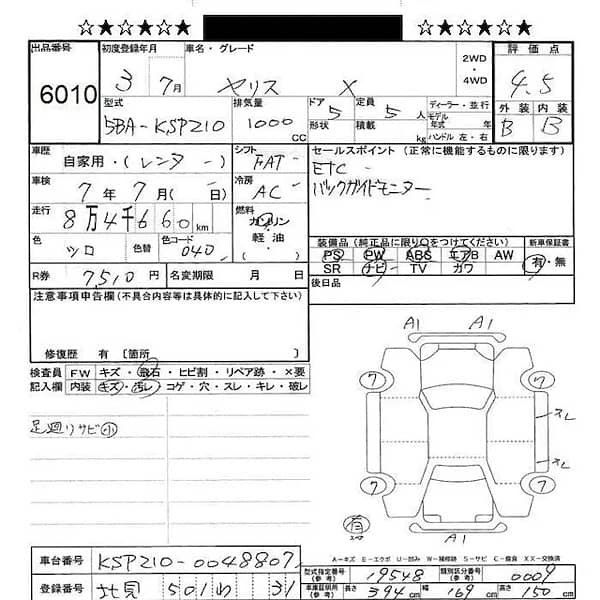 ☆★☆★☆★ ☆★☆★☆★
出品番号 6010
初度登録年月 3 7月
車名・グレード ヤリス X
2WD・4WD
評価点 4.5
外装 B 内装 B
型式 5BA-KSP210
排気量 1000 CC
ドア 5 形状
定員 5 人 積載 kg
ディーラー・並行
モデル年式 年式
ハンドル 左・右
車歴 自家用・(レンタ ー)
シフト FAT
セールスポイント(正常に機能するものに限ります)
ETC
バックガイドモニター
車検 7年7月(ー日)
冷房 AC
走行 8万4千660km
燃料 ガソリン・軽油・( )
色 シロ 色替 色コード 040
装備品(純正品に限り○をつけてください) 新車保証書
PS PW ABS エアB AW 有・無
SR ナビ TV カワ
R券 7,510円 名変期限 月 日
後日品
注意事項申告欄(不具合内容等は具体的に記入して下さい)
修復歴 有〔箇所 〕
検査員記入欄 FW キズ・飛石・ヒビ割・リペア跡・×要
内装 キズ・汚レ・コゲ・穴・スレ・キレ・破レ
足廻りサビ小
A1 A1
7 7
スレ
スレ
7 7
有
A1
A-キズ E-エクボ U-凹み W-補修跡 S-サビ C-腐食 XX-交換済
車台番号 KSP210-0048807
登録番号 北見 501 わ 31
型式指定番号(参考) 19548 類別区分番号(参考) 0009
車庫証明所(参考) 長さ 394cm 幅 169cm 高さ 150cm